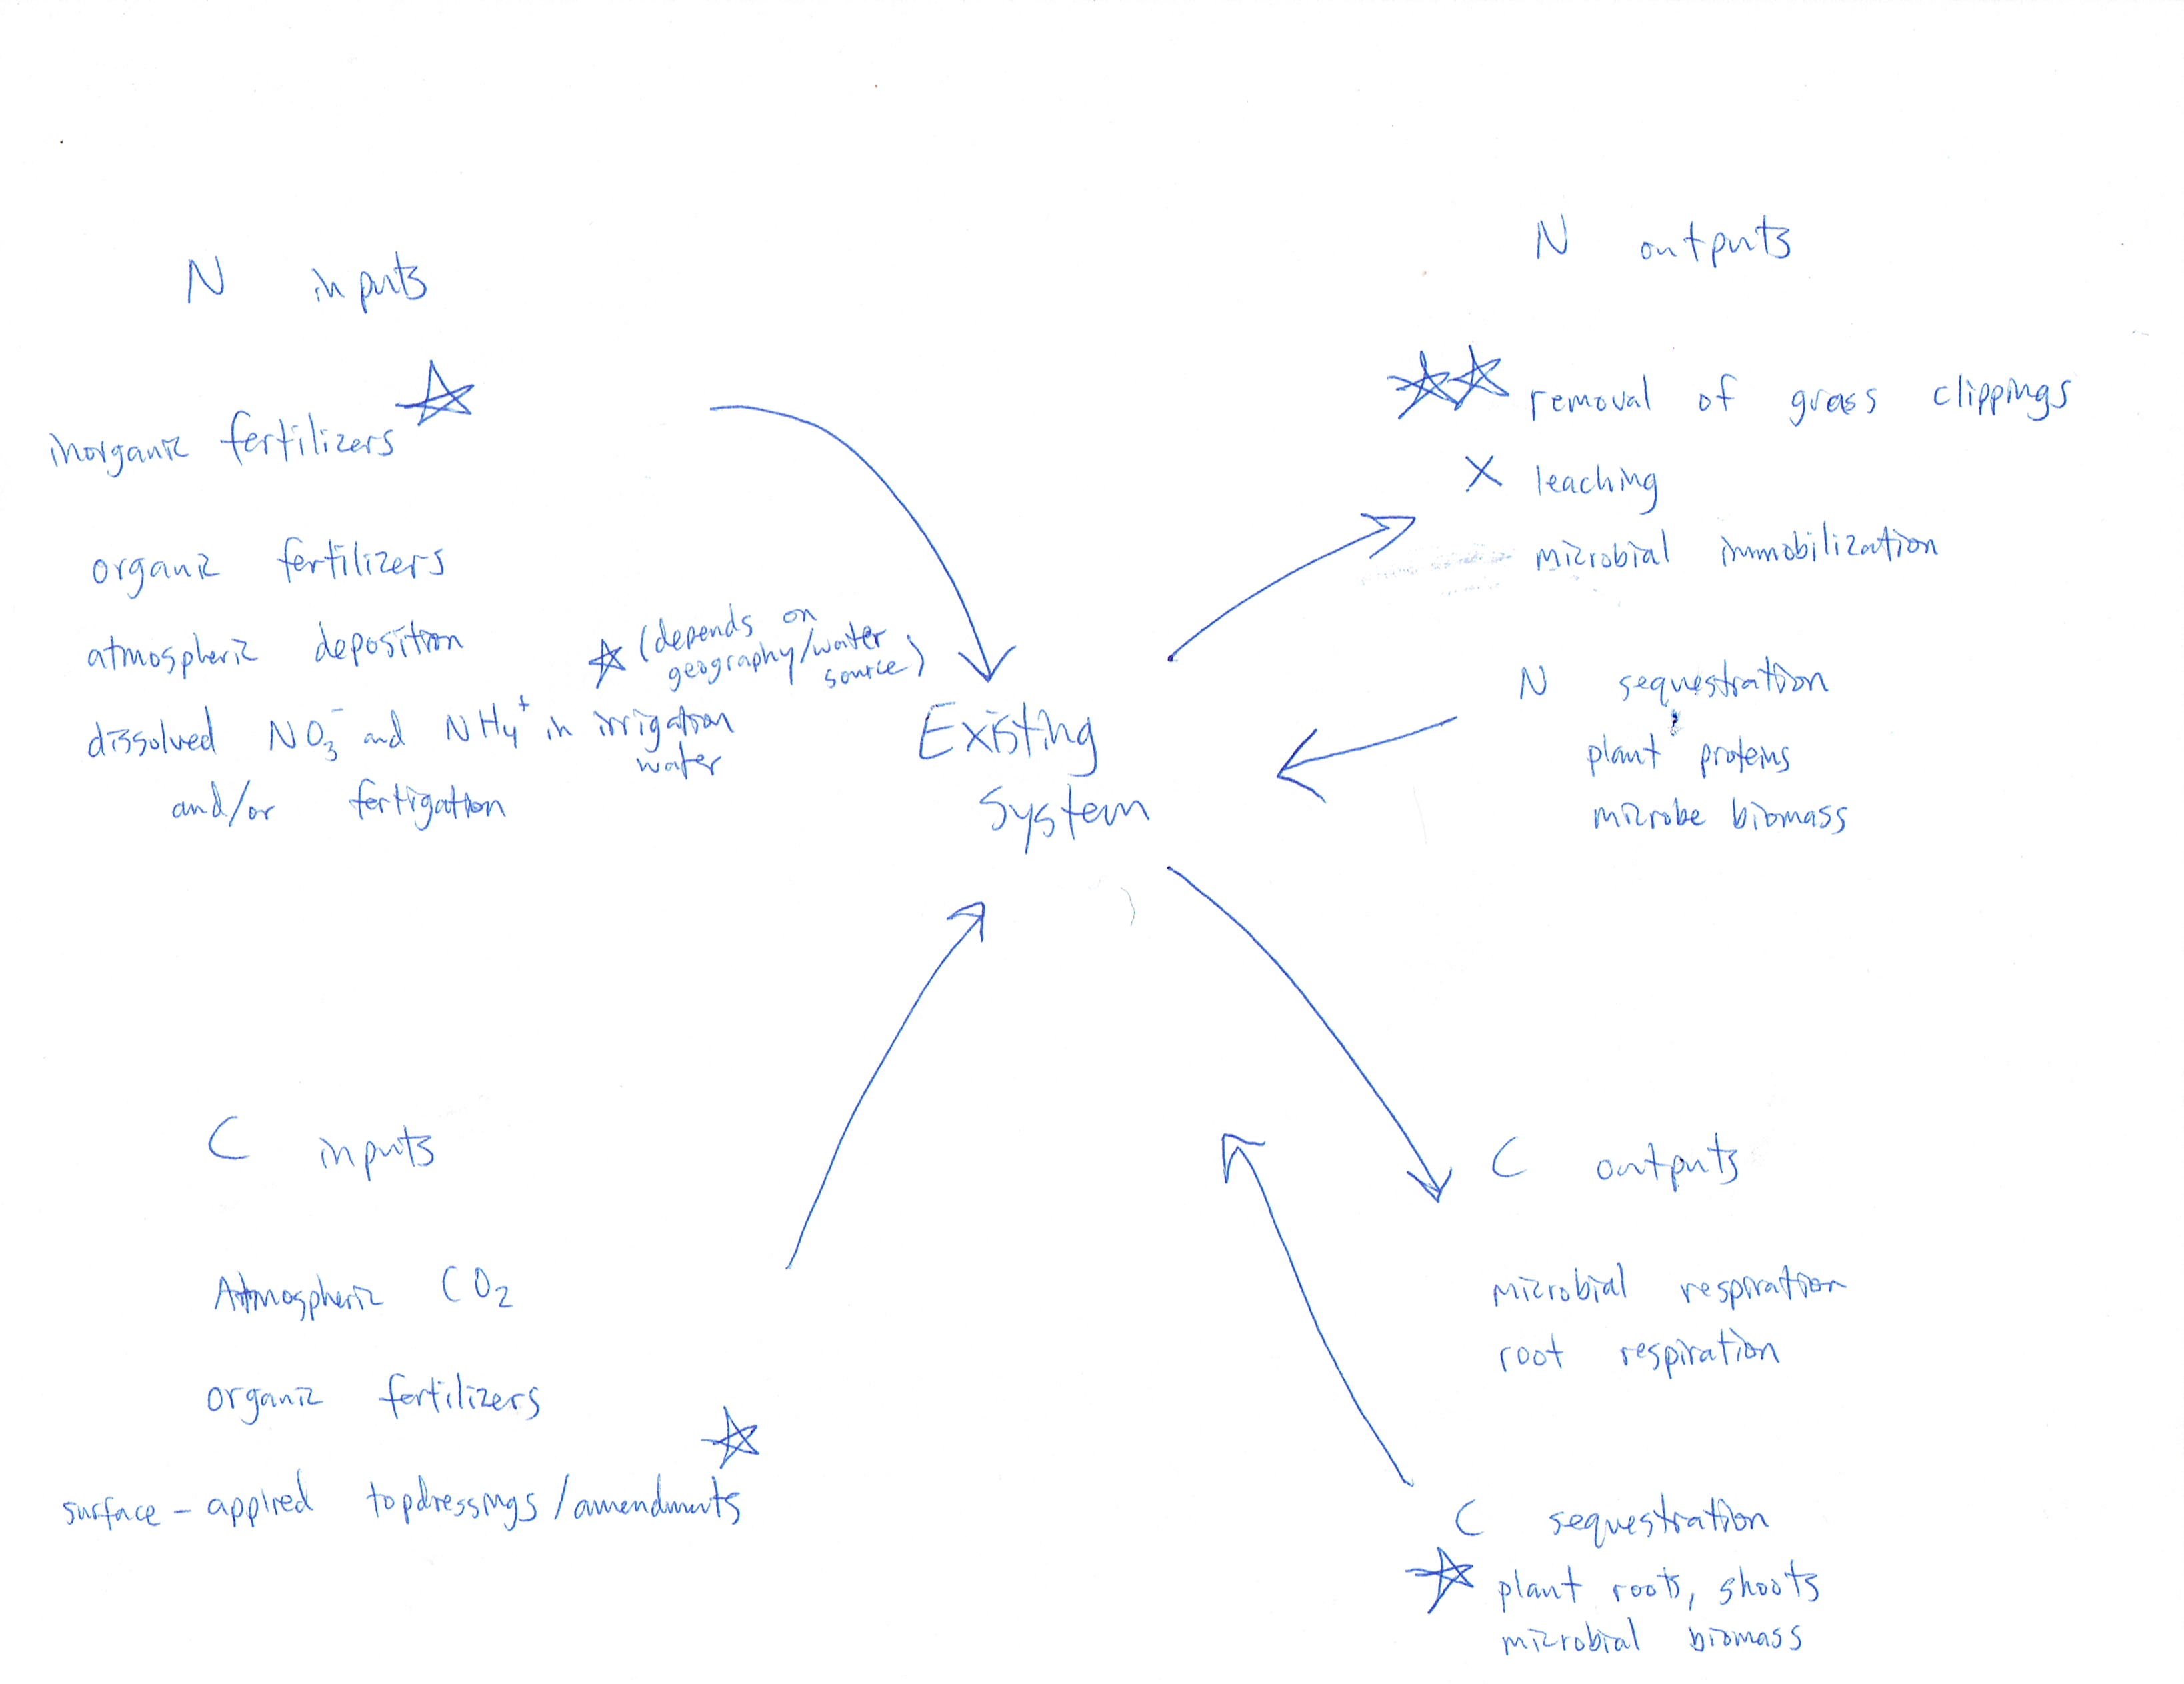 N inputs
inorganic fertilizers
organic fertilizers
atmospheric deposition
(depends on
geography/water
source)
dissolved NO₃⁻ and NH₄⁺ in irrigation
water
and/or fertigation
N outputs
removal of grass clippings
X leaching
microbial immobilization
N sequestration
plant proteins
microbe biomass
Existing
System
C inputs
Atmospheric CO₂
organic fertilizers
surface-applied topdressings/amendments
C outputs
microbial respiration
root respiration
C sequestration
plant roots, shoots
microbial biomass